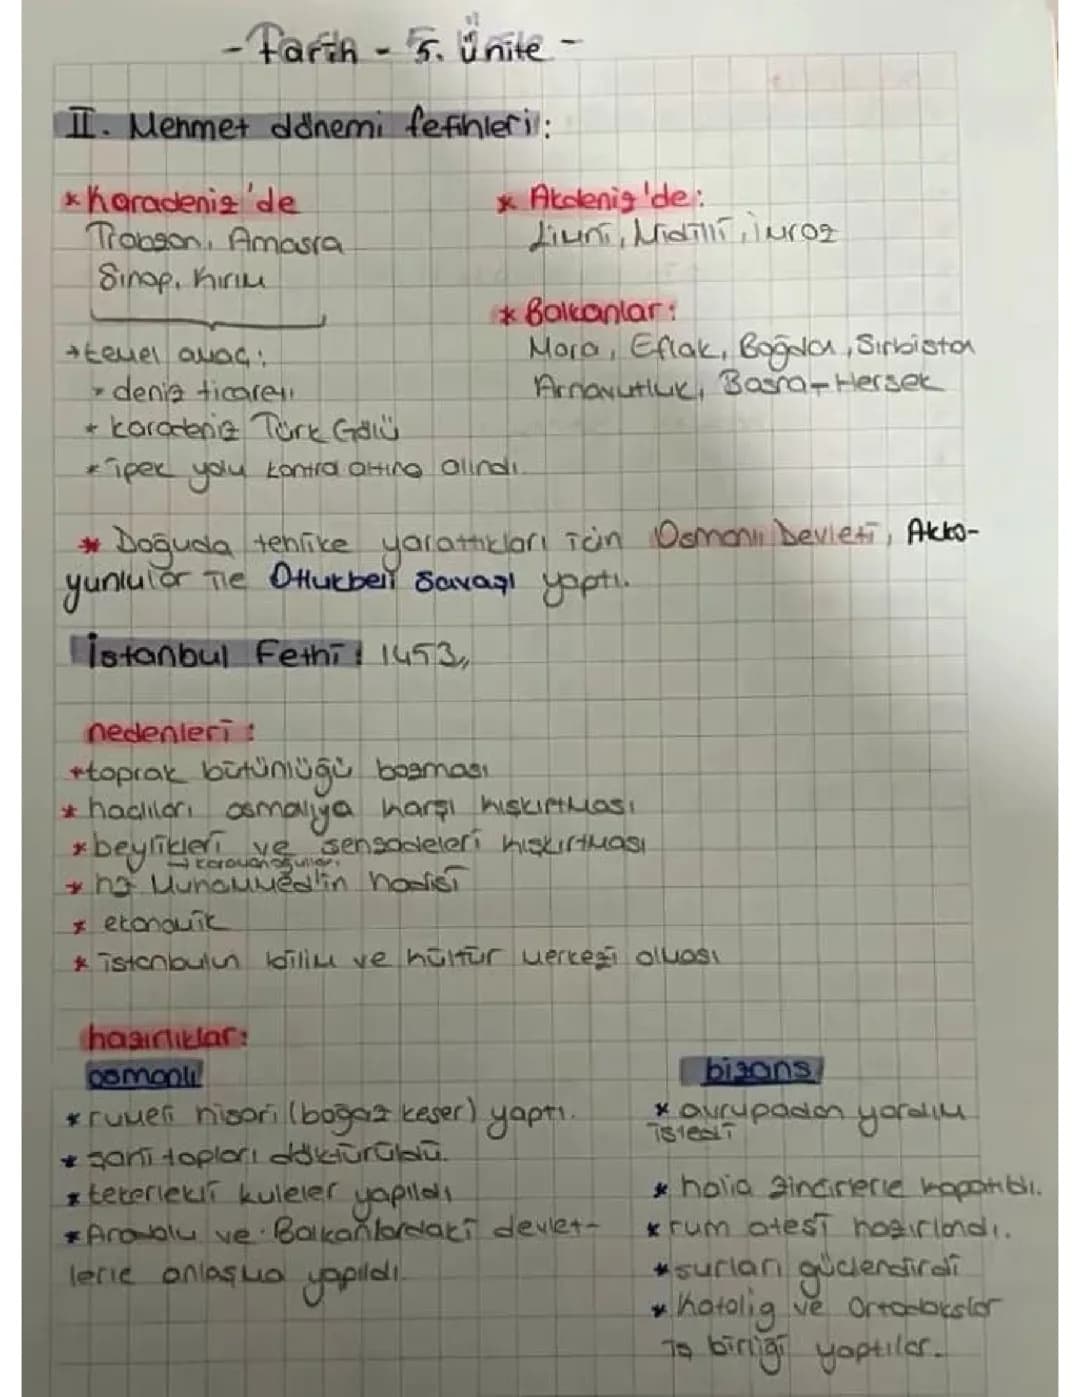 - Tarih - 5. Ünite -
II. Mehmet dönemi fetihleri:
* Karadeniz'de
Trabzon, Amasra
Sinop, Kırım
→ temel amaç:
* deniz ticareti
* karadeniz Türk Gölü
* ipek yolu kontrol altına alındı.
* Akdeniz'de:
Limni, Midilli, İmroz
* Balkanlar:
Mora, Eflak, Boğdan, Sırbistan
Arnavutluk, Bosna-Hersek
* Doğuda tehlike yarattıkları için Osmanlı Devleti, Akko-
yunlular ile Otlukbeli Savaşı yaptı.
İstanbul Fethi: 1453,,
nedenleri:
* toprak bütünlüğü bozması
* haçlıları osmalıya karşı kışkırtması
* beylikleri ve şehzadeleri kışkırtması
→ karamanoğulları
* hz Muhammed'in hadisi
* ekonomik
* istanbulun bilim ve kültür merkezi olması
hazırlıklar:
osmanlı
* rumeli hisarı (boğaz keser) yaptı.
* şahi topları döktürüldü.
* tekerlekli kuleler yapıldı
* Anadolu ve Balkanlardaki devlet-
lerle anlaşma yapıldı.
bizans
* avrupadan yardım
istedi
* haliç zincirlerle kapatıldı.
* rum ateşi hazırlandı.
* surları güçlendirdi
* katolig ve Ortodokslar
iş birliği yaptılar.